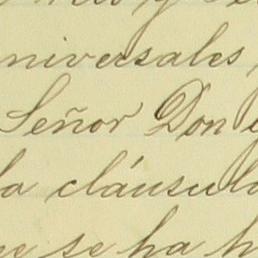 niversales,
Señor Don
la cláusula
se ha h